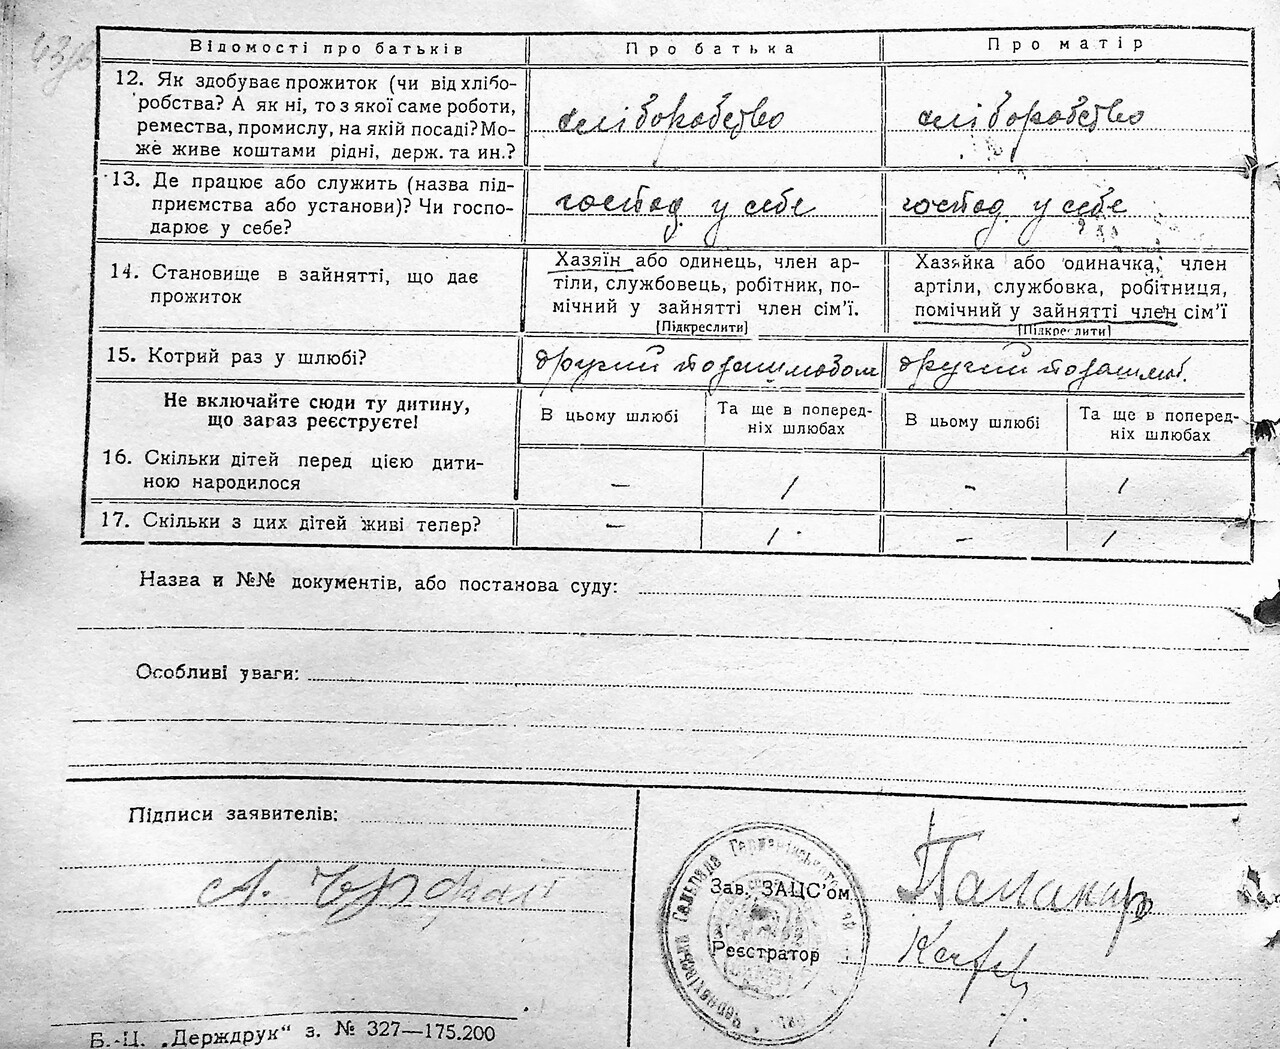 43зв
Відомості про батьків Про батька Про матір
12. Як здобуває прожиток (чи від хлібо-
робства? А як ні, то з якої саме роботи,
ремества, промислу, на якій посаді? Мо-
же живе коштами рідні, держ. та ин.?
хліборобство хліборобство
13. Де працює або служить (назва під-
приємства або установи)? Чи госпо-
дарює у себе?
господ. у себе господ. у себе
14. Становище в зайнятті, що дає
прожиток
Хазяїн або одинець, член ар-
тіли, службовець, робітник, по-
мічний у зайнятті член сім'ї.
(Підкреслити)
Хазяйка або одиначка, член
артіли, службовка, робітниця,
помічний у зайнятті член сім'ї
(Підкреслити)
15. Котрий раз у шлюбі? другий позашлюбом другий позашлюб.
Не включайте сюди ту дитину,
що зараз реєструєте!
В цьому шлюбі Та ще в поперед-
ніх шлюбах В цьому шлюбі Та ще в поперед-
ніх шлюбах
16. Скільки дітей перед цією дити-
ною народилося – 1 – 1
17. Скільки з цих дітей живі тепер? – 1 – 1
Назва и №№ документів, або постанова суду:
Особливі уваги:
Підписи заявителів:
А.
Зав. ЗАЦС'ом
Реєстратор
Б.-Ц. „Держдрук“ з. № 327—175.200